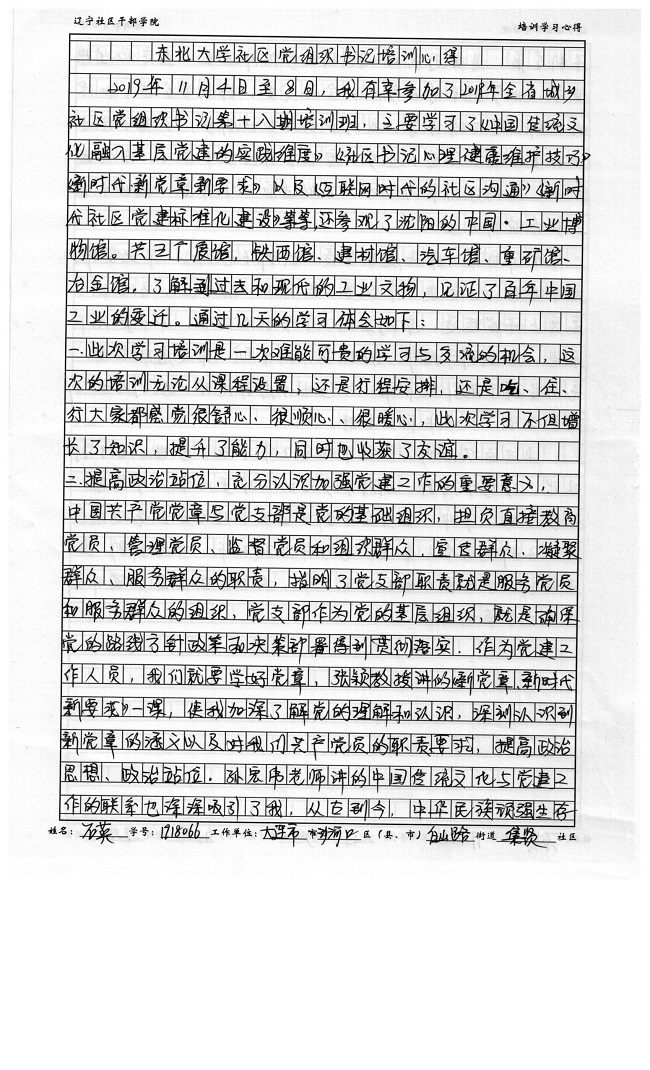 辽宁社区干部学院
培训学习心得
东北大学社区党组织书记培训心得
2019年11月4日至8日，我有幸参加了2019年全省城乡
社区党组织书记第十八期培训班，主要学习了《中国传统文
化融入基层党建的实践维度》《社区书记心理健康维护技巧》
《新时代新党章新要求》以及《互联网时代的社区沟通》《新时
代社区党建标准化建设》等等，还参观了沈阳的中国·工业博
物馆。共五个展馆，铁西馆、建材馆、汽车馆、重矿馆、
冶金馆，了解到过去和现代的工业文物，见证了百年中国
工业的变迁。通过几天的学习体会如下：
一.此次学习培训是一次难能可贵的学习与交流的机会，这
次的培训无论从课程设置，还是行程安排，还是吃、住、
行大家都感觉很舒心、很顺心、很暖心，此次学习不但增
长了知识，提升了能力，同时也收获了友谊。
二.提高政治站位，充分认识加强党建工作的重要意义，
中国共产党党章写党支部是党的基础组织，担负直接教育
党员、管理党员、监督党员和组织群众、宣传群众、凝聚
群众、服务群众的职责，指明了党支部职责就是服务党员
和服务群众的组织，党支部作为党的基层组织，就是确保
党的路线方针政策和决策部署得到贯彻落实.作为党建工
作人员，我们就要学好党章，张颖教授讲的《新党章、新时代
新要求》一课，使我加深了解党的理解和认识，深刻认识到
新党章的涵义以及对我们共产党员的职责要求，提高政治
思想、政治站位.孙宏伟老师讲的中国传统文化与党建工
作的联系也深深吸引了我，从古到今，中华民族顽强生存
姓名：石英 学号：1918066 工作单位：大连市 市沙河口区（县、市）白山路 街道 集贤 社区